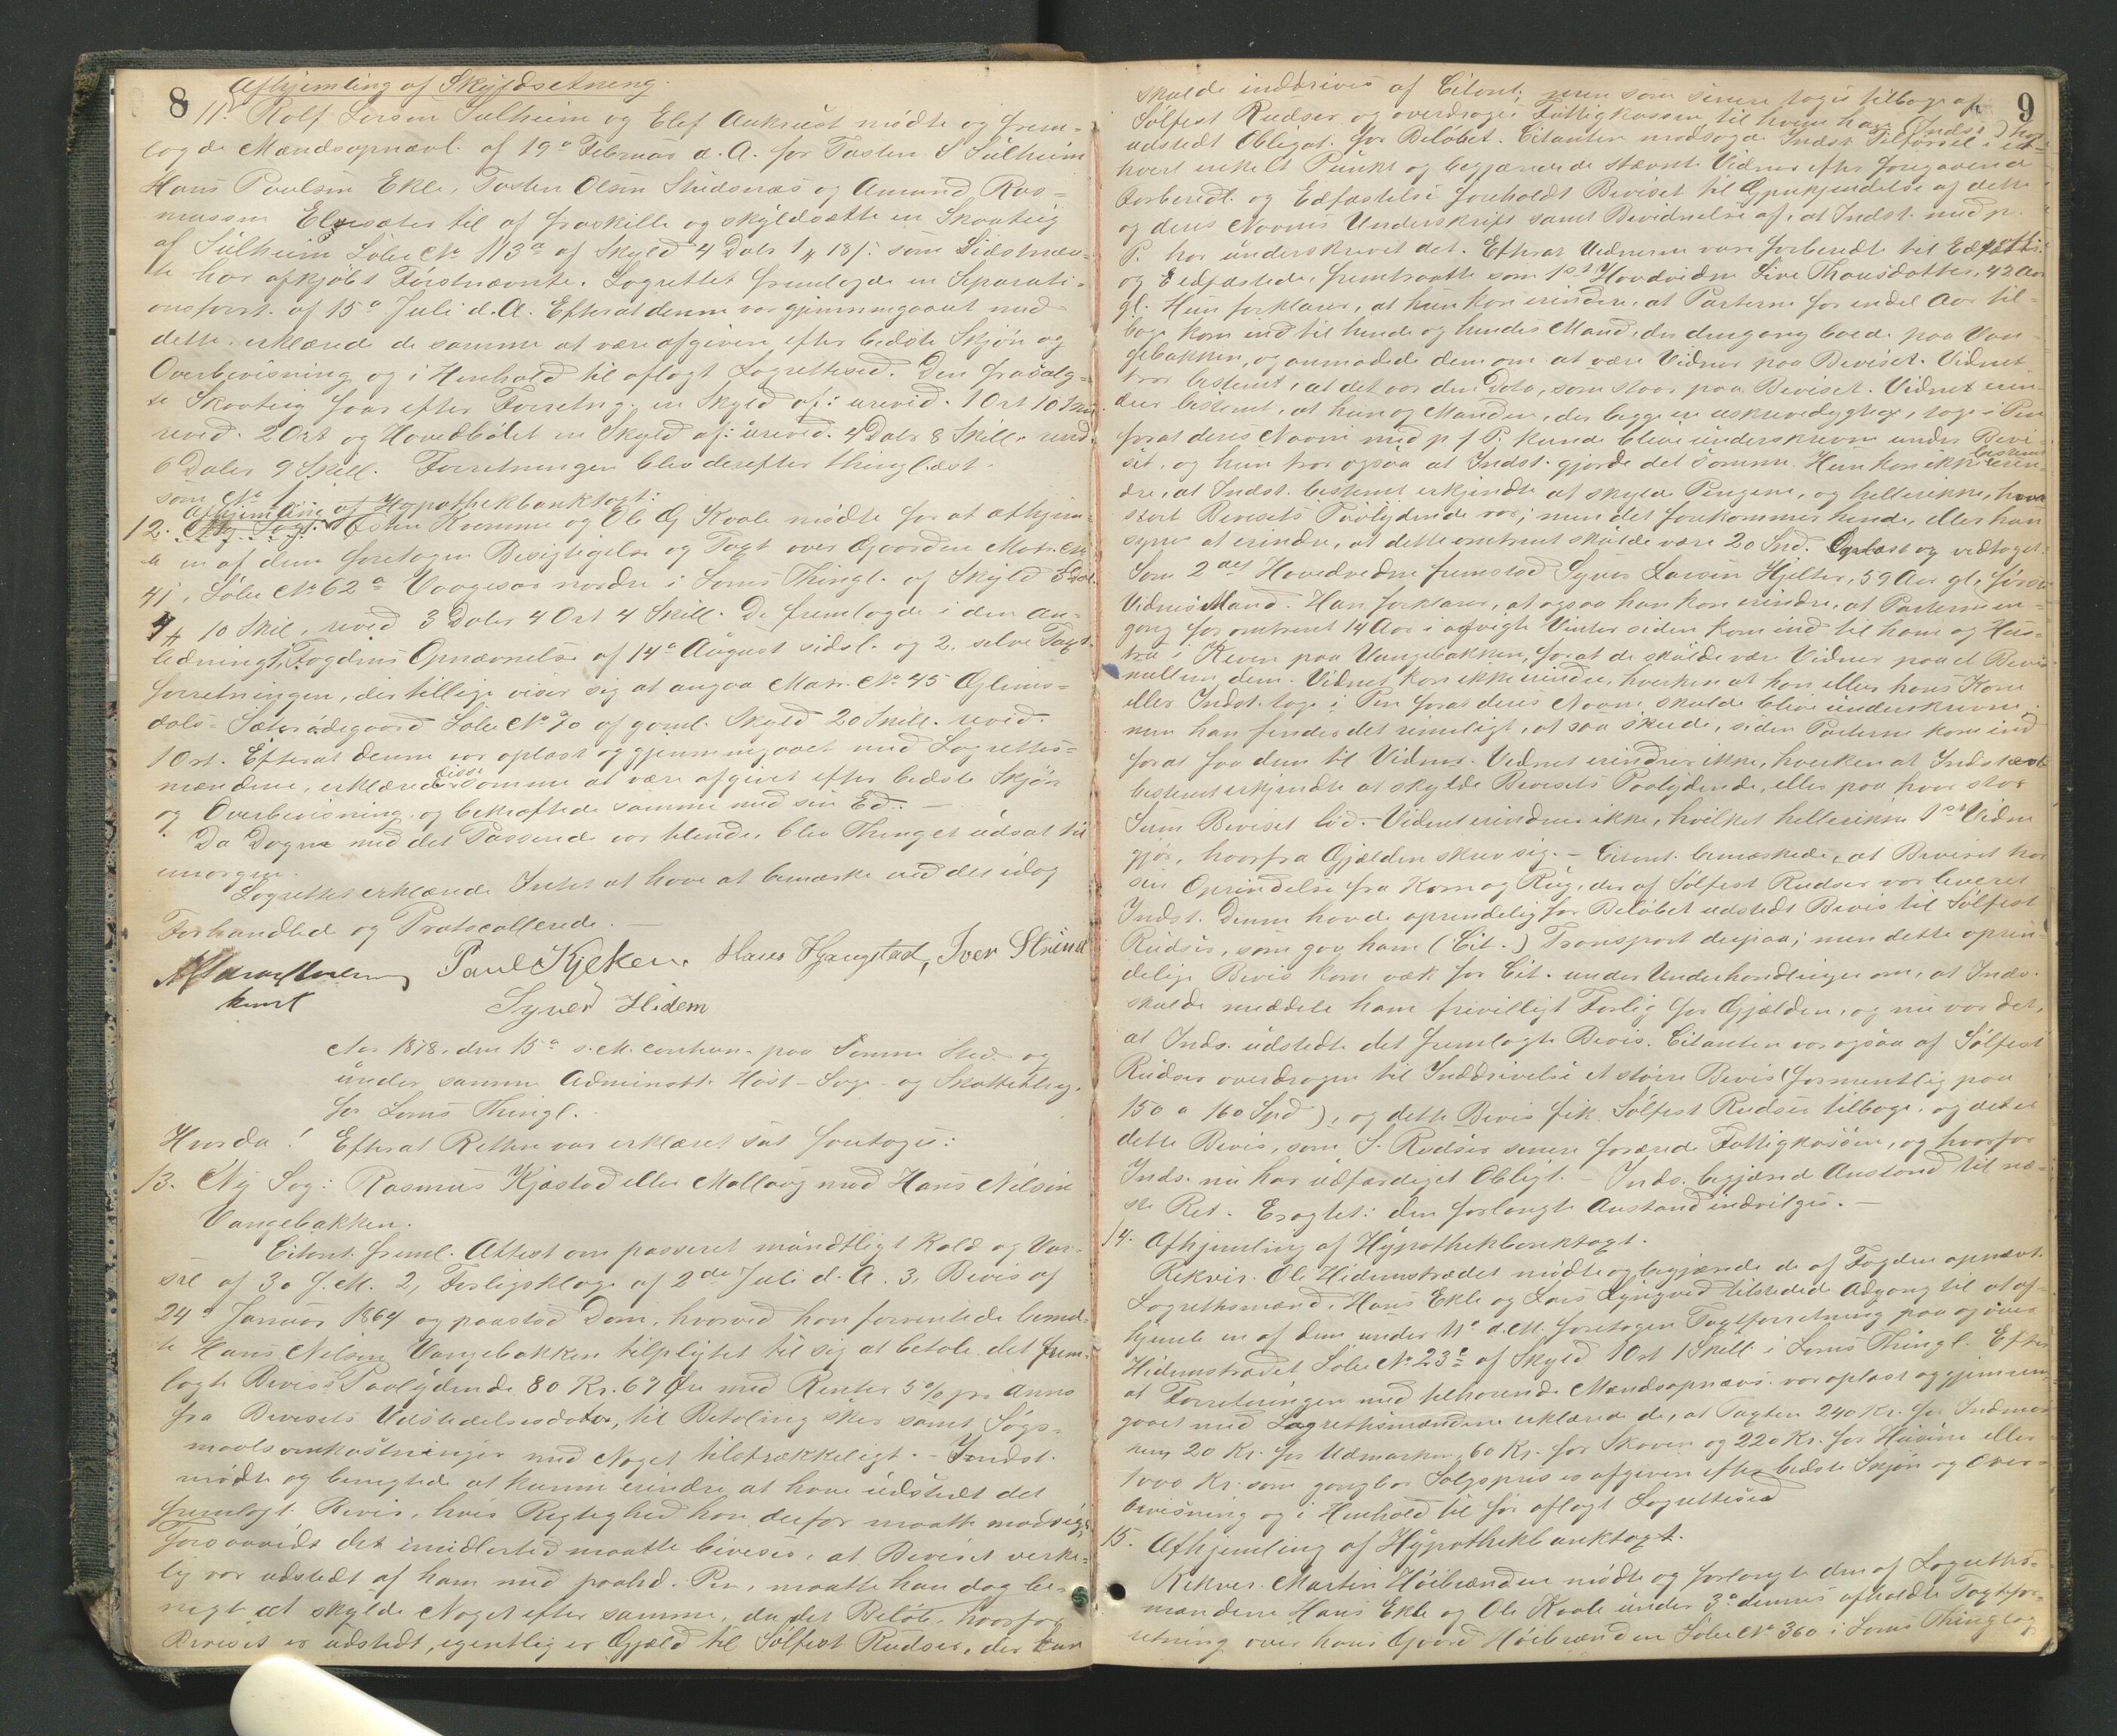 8
Afhjemling af Skyldsætning.
11. Rolf Larsen Sulheim og Elef Aukrust mødte og frem-
lagde Mandsopnævl. af 19de Februar d. A. for Tosten S Sulheim
Hans Poulsen Ekle, Tosten Olsen Studsnæs og Amund Ras-
mussen Elvesæter til at fraskille og skyldsætte en Skovteig
af Sulheim Løbe No 113a af Skyld 4 Daler 1 18 s. som Sidstnævn-
te har afkjøbt Førstnævnte. Lagrettet fremlagde en Separati-
onsforr. af 15de Juli d. A. Efterat denne var gjennemgaaet med
dette, erklærede de samme at være afgiven efter bedste Skjøn og
Overbevisning og i Henhold til aflagt Lagrettesed. Den frasolg-
te Skovteig faar efter Forretng. en Skyld af: urevid. 1 Ort 10 Skil.
revid. 2 Ort og Hovedbølet en Skyld af: urevid. 4 Daler 8 Skill. revid.
6 Daler 9 Skill. Forretningen blev derefter thinglæst.
som No 1.
Afhjemling af Hypothekbanktagt:
12. Ny Sag. Østen Kvamme og Ole Kvale mødte for at afhjem-
le en af dem foretagen Besigtigelse og Tagt over Gaarden Matr. No
41, Løbe No 62a Vaagesar nordre i Loms Thingl. af Skyld
10 Skil, revid 3 Daler 4 Ort 4 Skill. De fremlagde i den An-
ledning 1, Fogdens Opnævnelse af 14de August sidstl. og 2, selve Tagt-
forretningen, der tillige viser sig at angaa Matr. No 45 Glims-
dals-Sæterødegaard Løbe No 70 af gaml. Skyld 20 Skill. revid.
1 Ort. Efterat denne var oplæst og gjennemgaaet med Lagrettes-
mændene, erklærede disse samme at være afgivet efter bedste Skjøn
og Overbevisning og bekræftede samme med sin Ed. —
Da Dagen med det Passerede var tilende, blev Thinget udsat til
imorgen.
Lagrettet erklærede Intet at have at bemærke ved det idag
Forhandled og Protocollerede. —
Paul Kjeken. Hans Hjengstad, Iver Strind
const
Syver Hidem
Aar 1878, den 15de s. M. continu. paa Samme Sted og
under samme Administr. Høst-Sage- og Skattething
for Loms Thingl.
Hvorda! Efterat Retten var erklæret sat foretoges:
13. Ny Sag: Rasmus Kjæstad eller Mollaug mod Hans Nilsen
Vangebakken.
Citant. freml. Attest om passeret mundtligt Kald og Var-
sel af 30 f. M. 2, Forligsklage af 2den Juli d. A. 3, Bevis af
24de Januar 1864 og paastod Dom, hvorved han formentede bemeld-
te Hans Nilsen Vangebakken tilpligtet til sig at betale det frem-
lagte Bevis's Paalydende 80 Kr. 69 Øre med Renter 5 % pr Anno
fra Bevisets Udstedelsesdato, til Betaling sker samt Søgs-
maalsomkostninger med Noget tilstrækkeligt. — Indst.
mødte og benegtede at kunne erindre at have udstedt det
fremlagt. Bevis, hvis Rigtighed han derfor maatte modsige.
Forsaavidt det imidlertid maatte bevises, at Beviset virke-
lig var udstedt af ham med paahd. Pen, maatte han dog be-
negte at skylde Noget efter samme, da det Beløb, hvorfor
Beviset er udstedt, egentlig er Gjæld til Sølfest Rudser, der
9
skulde inddrives af Citant. men som senere toges tilbage af
Sølfest Rudser og overdroges Fattigkassen, til hvem han (Inds.) har
udstedt Obligat. for Beløbet. Citanten modsagde Indst. Tilførsel i et-
hvert enkelt Punkt og begjærede de stævnte Vidner efter foregaaende
Forberedl. og Edfæstelse foreholdt Beviset til Gjenkjendelse af dette
og deres Navnes Underskrift samt Bevidnelse af, at Indst. med p.
P. har underskrevet det. Efterat Vidnerne vare forberedte til Edfæst.
og Eedfæstede, fremtraatte som 1ste Hovedvidne Live Thorsdatter, 42 Aar
gl. Hun forklarer, at hun kan erindre, at Parterne for endel Aar til-
bage kom ind til hende og hendes Mand, der dengang boede paa Van-
gebakken, og anmodede dem om at være Vidner paa Beviset. Vidnet
tror bestemt, at det var den Dato, som staar paa Beviset. Vidnet erin-
drer bestemt, at hun og Manden, der begge ere uskrivedygtige, toge i Pen
forat deres Navne med p f P. kunde blive underskrevne under Bevi-
set, og hun tror ogsaa at Indst. gjorde det samme. Hun kan ikke bestemt erin-
dre, at Indst. bestemt erkjendte at skylde Pengene, og hellerikke, hvor
stort Bevisets Paalydende var; men det forekommer hende, eller hun
synes at erindre, at dette omtrent skulde være 20 Spd. Oplæst og vedtaget.
Som 2det Hovedvidne fremstod Syver Larsen Hjeltar, 59 Aar gl. første
Vidnes Mand. Han forklarer, at ogsaa han kan erindre, at Parterne en-
gang for omtrent 14 Aar i afvigte Vinter siden kom ind til ham og Hus-
tru i Kleven paa Vangebakken, forat de skulde være Vidner paa et Bevis
mellem dem. Vidnet kan ikke erindre, hverken at han eller hans Kone
eller Indst. toge i Pen forat deres Navne skulde blive underskrevne
men han findes det rimeligt, at saa skede, siden Parterne kom ind
forat faa dem til Vidner. Vidnet erindrer ikke, hverken at Indstævnte
bestemt erkjendte at skylde Bevisets Paalydende, eller paa hvor stor
Sum Beviset lød. Vidnet erindrer ikke, hvilket hellerikke 1ste Vidne
gjør, hvorfra Gjælden skrev sig. — Citant. bemærkede, at Beviset har
sin Oprindelse fra Korn og Rug, der af Sølfest Rudser var leveret
Indst. Denne havde oprindelig for Beløbet udstedt Bevis til Sølfest
Rudser, som gav ham (Cit.) Transport derpaa; men dette oprin-
delige Bevis kom væk for Cit. under Underhandlinger om, at Inds.
skulde meddele ham frivilligt Forlig for Gjælden, og nu var det,
at Inds. udstedte det fremlagte Bevis. Citanten var ogsaa af Sølfest
Rudser overdragen til Inddrivelse et større Bevis (formentlig paa
150 a 160 Spd), og dette Bevis fik Sølfest Rudser tilbage, og det er
dette Bevis, som S. Rudser senere forærede Fattigkassen, og hvorfor
Inds. nu har udfærdiget Obligt. — Inds. begjærede Anstand til næ-
ste Ret. Eragtet: den forlangte Anstand indvilges. —
14. Afhjemling af Hypothekbanktagt.
Rekvir. Ole Hidemstrædet mødte og begjærede de af Fogden opnævt.
Lagrettsmænd, Hans Ekle og Lars Lyngved tilstedet Adgang til at af-
hjemle en af dem under 11te d. M. foretagen Tagtforretning paa og over
Hidemstrædet Løbe No 23c af Skyld 1 Ort 1 Skill. i Loms Thingl. Efter
at Forretningen med tilhørende Mandsopnævn. var oplæst og gjennem-
gaaet med Lagrettsmændene erklærede de, at Tagten 240 Kr. for Indmar-
ken, 20 Kr. for Udmarken, 60 Kr. for Skoven og 220 Kr. for Husene eller
1000 Kr. som gangbar Salgspris er afgiven efter bedste Skjøn og Over-
bevisning og i Henhold til før aflagt Lagrettesed
15. Afhjemling af Hypothekbanktagt.
Rekver. Martin Høibrænden mødte og forlangte den af Lagretts-
mændene Hans Ekle og Ole Kvale under 3de dennes afholdte Tagtfor-
retning over hans Gaard Høibrænden Løbe No 360 i Loms Thinglag